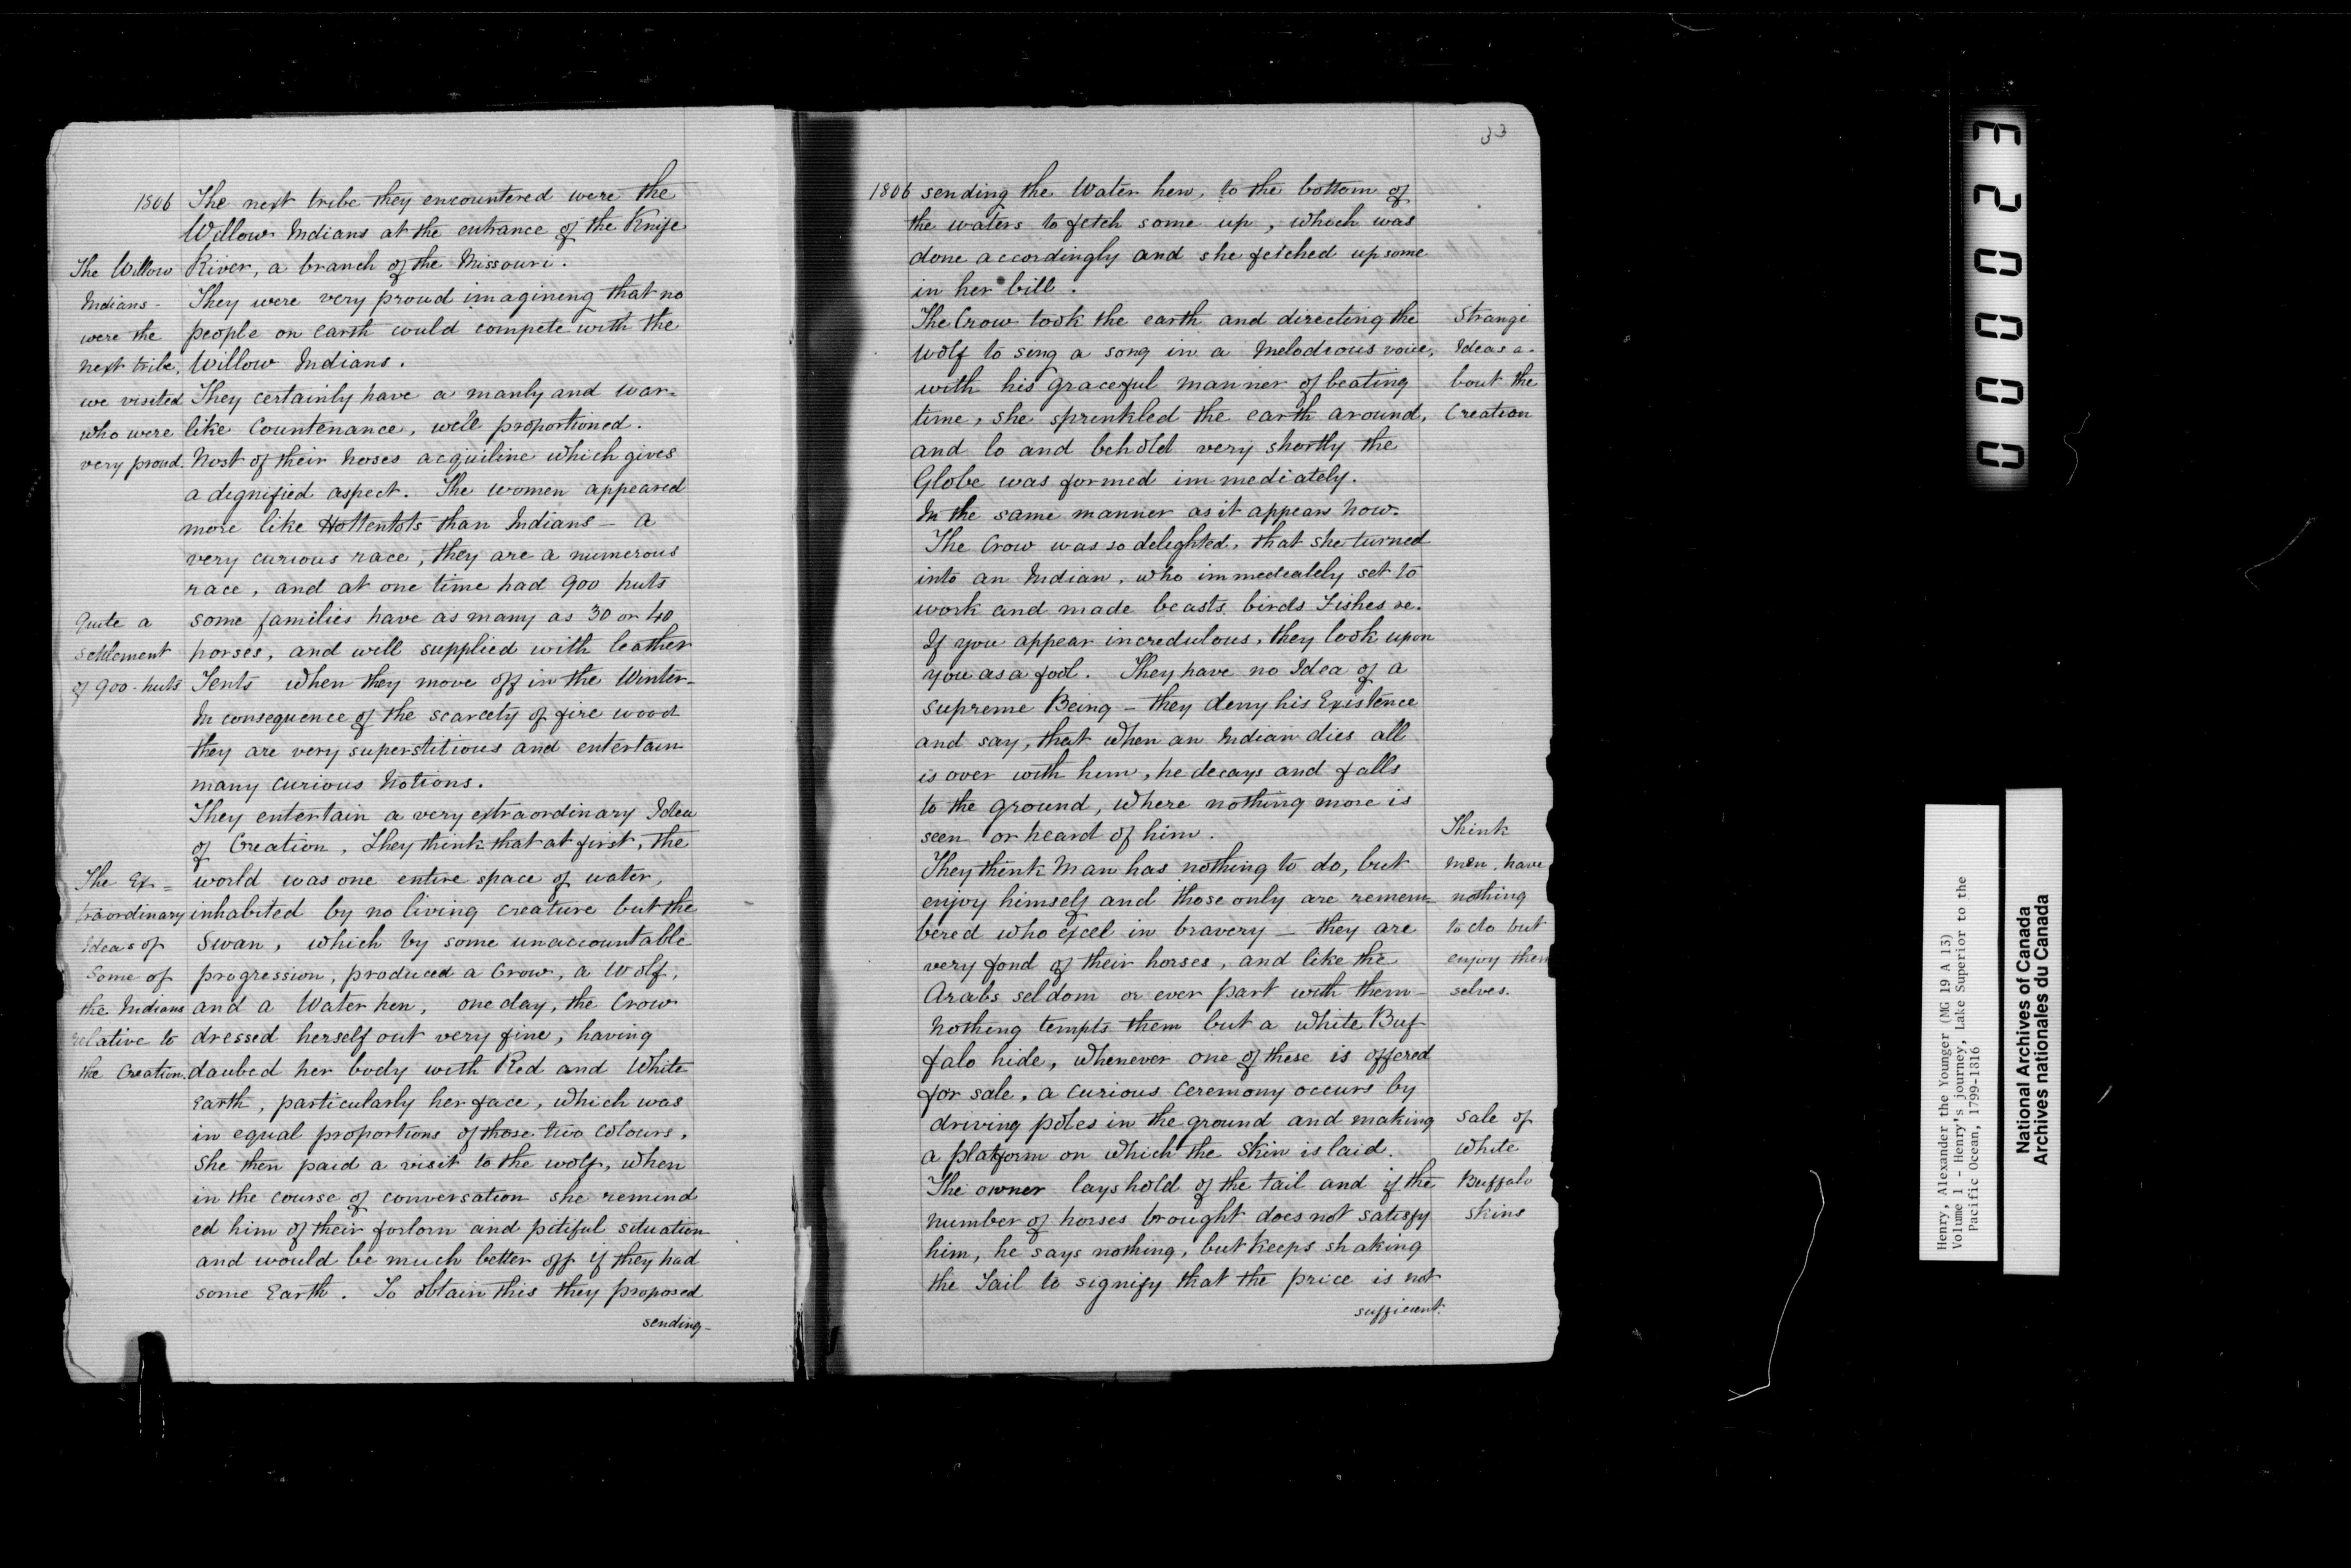 1806
The next tribe they encountered were the
Willow Indians at the entrance of the Knife
River, a branch of the Missouri.
They were very proud imagineng that no
people on earth could compete with the
Willow Indians.
They certainly have a manly and war=
like Countenance, well proportioned.
Most of their Noses acquiline which gives
a dignified aspect. The women appeared
more like Hottentots than Indians — a
very curious race, they are a numerous
race, and at one time had 900 huts
some families have as many as 30 or 40
horses, and well supplied with leather
Tents when they move off in the Winter-
In consequence of the scarcety of fire wood
they are very superstitious and entertain
many curious Notions.
They entertain a very extraordinary Idea
of Creation, They think that at first, the
world was one entire space of water,
inhabited by no living creature but the
Swan, which by some unaccountable
progression, produced a Crow, a Wolf,
and a Water hen, one day, the Crow
dressed herself out very fine, having
daubed her body with Red and White
Earth, particularly her face, which was
in equal proportions of those two Colours.
She then paid a visit to the wolf, when
in the course of conversation she remind
ed him of their forlorn and pitiful situation
and would be much better off if they had
some Earth. To obtain this they proposed
sending-
The Willow
Indians -
were the
next tribe,
we visited
who were
very proud.
Quite a
settlement
of 900 - huts
The Ex =
traordinary
Ideas of
Some of
the Indians
relative to
the Creation.
33
1806
sending the Water hen, to the bottom of
the waters to fetch some up, which was
done accordingly and she fetched up some
in her bill.
The Crow took the earth and directing the
Wolf to seng a song in a Melodious voice,
with his graceful manner of beating
time, she sprinkled the earth around,
and lo and behold very shortly the
Globe was formed immediately.
In the same manner as it appears now.
The Crow was so delighted, that she turned
into an Indian, who immedeately set to
work and made beasts, birds Fishes &c.
If you appear incredulous, they look upon
you as a fool. They have no Idea of a
Supreme Being — they deny his Existence
and say, that when an Indian dies all
is over with him, he decays and falls
to the ground, where nothing more is
seen or heard of him.
They think Man has nothing to do, but
enjoy himself and those only are remem=
bered who excel in bravery — they are
very fond of their horses, and like the
Arabs seldom or ever part with them -
Nothing tempts them but a white Buf
falo hide, whenever one of these is offered
for sale, a curious ceremony occurs by
driving poles in the ground and making
a platform on which the Skin is laid.
The owner lays hold of the tail and if the
number of horses brought does not satisfy
him, he says nothing, but keeps shaking
the Tail to signify that the price is not
sufficient.
Strange
Ideas a-
bout the
Creation
Think
men, have
nothing
to do but
enjoy them
selves.
Sale of
White
Buffalo
skins
00023
Henry, Alexander the Younger (MG 19 A 13)
Volume 1 - Henry's journey, Lake Superior to the
Pacific Ocean, 1799-1816
National Archives of Canada
Archives nationales du Canada